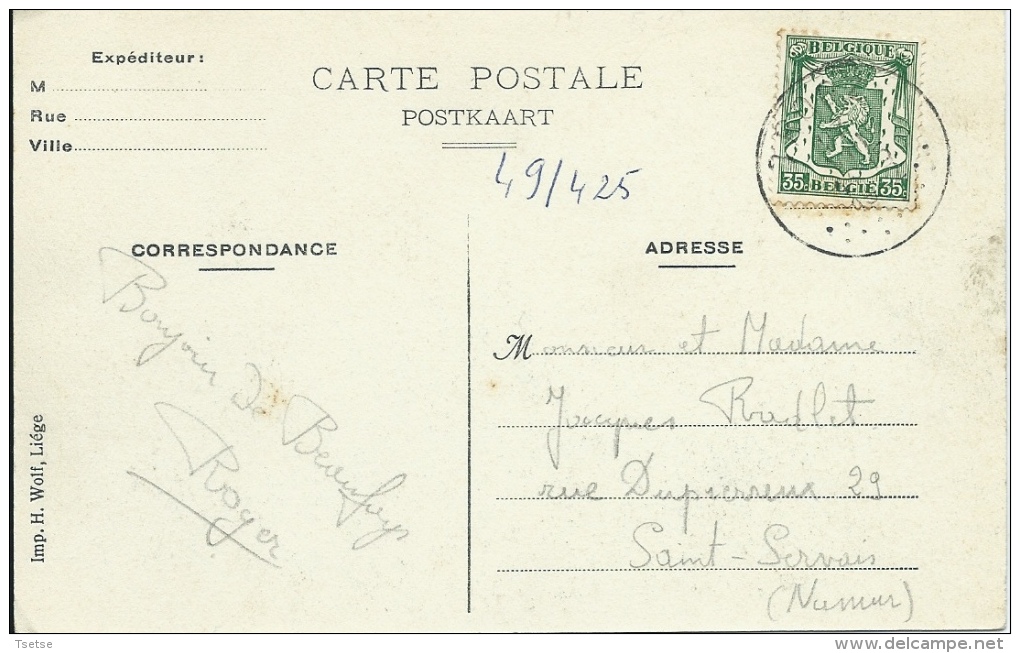 Expéditeur:
M
Rue
Ville
CARTE POSTALE
POSTKAART
BELGIQUE
35c BELGIË 35c
49/425
CORRESPONDANCE
ADRESSE
Bonjour de Beaufays
Roger
Monsieur et Madame
Jacques
rue Dupierreux 29
Saint-Servais
(Namur)
Imp. H. Wolf, Liége
Tsetse
www.delcampe.net